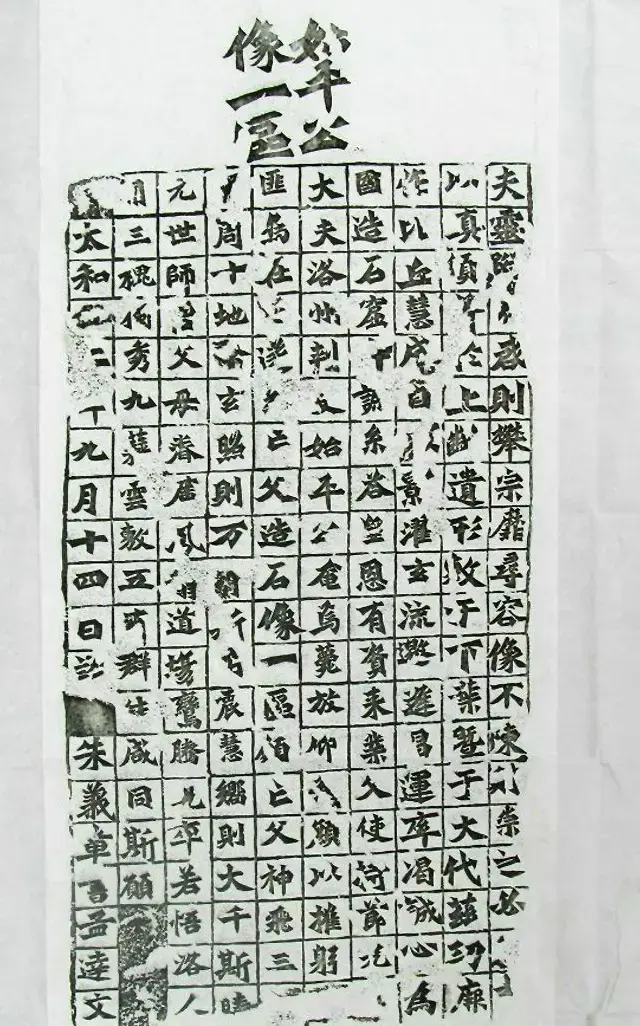 始平公
像一區
夫靈啟則攀宗靡尋容像不陳崇之必
以真顏於上齡遺形敷于下葉暨于大代茲功厥
作比丘慧成自影濯玄流邀逢昌運率渴誠心為
國造石窟系答皇恩有資来業父使持節光
大夫洛州刺史始平公奄焉薨放仰顏以摧躬
匪烏在遂亡父造石像一區願亡父神飛三
周十地玄照則万震慧嚮則大千斯瞪
元世師僧父母眷屬鳳翥道場鸞騰兜率若悟洛人
三槐獨秀九蕀雲敷五有群生咸同斯願
太和二年九月十四日訖朱義章書孟達文